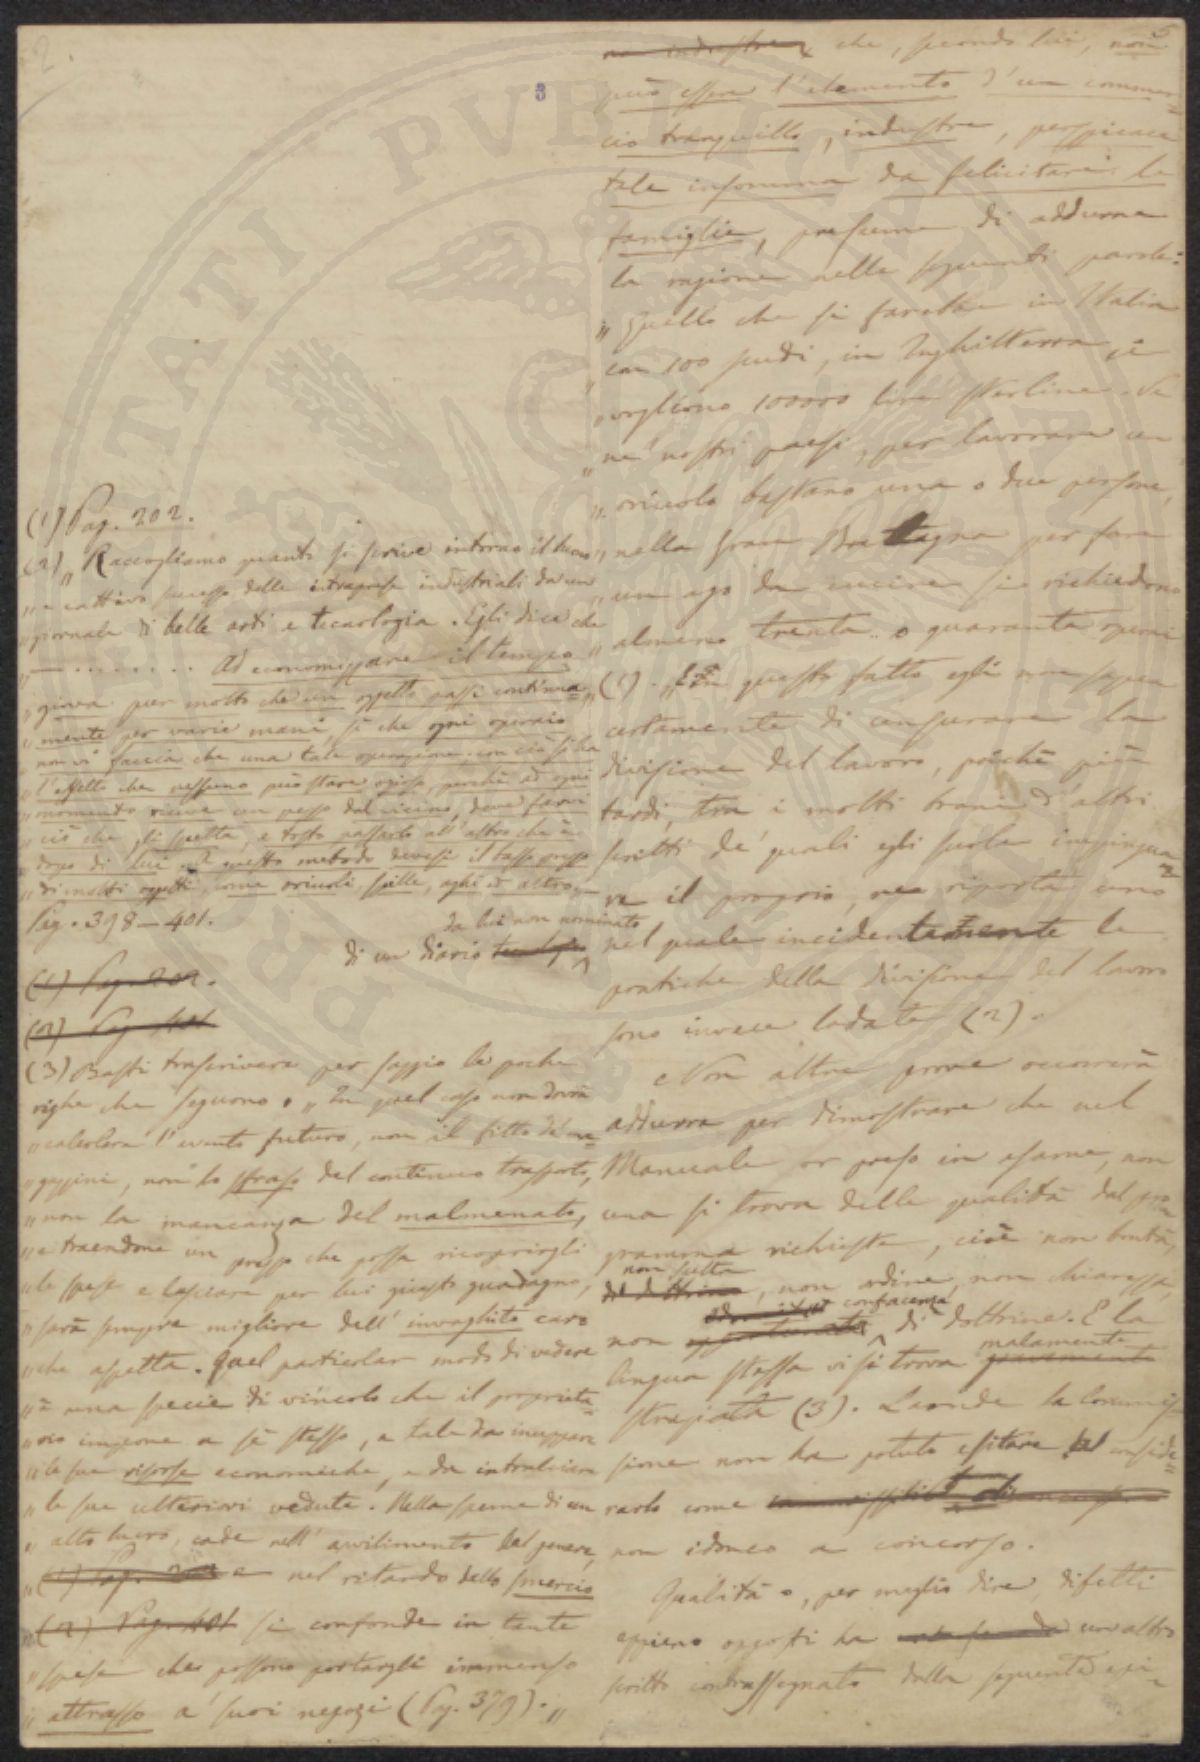 2.
3
5
(1) Pag. 202.
(2) „ Raccogliamo quanto si scrive intorno il buono
„ e cattivo successo delle intraprese industriali da un
„ giornale di belle arti e tecnologia. Egli dice che
„ — . . . . . . . . Ad economizzare il tempo
„ giova pur molto che un oggetto passi continua=
„ mente per varie mani, sì che ogni operaio
„ non vi faccia che una tale operazione; con ciò si ha
„ l'effetto che nessuno può stare ozioso, perchè ad ogni
„ momento riceve un pezzo dal vicino, deve farvi
„ ciò che gli spetta, e tosto passarlo all'altro che è
„ dopo di lui questo metodo devesi il basso prezzo
„ di molti oggetti, come oriuoli, spille, aghi ed altro „
Pag. 398–401.
da lui non nominato
di un diario
(1) Pag. 202.
(2) Pag. 401
(3) Basti trascrivere per saggio le poche
righe che seguono. „ In quel caso non dovrà
„ calcolare l'evento futuro, non il fitto de' ma=
„ gazzini, non lo sfraso del continuo trasporto,
„ non la mancanza del malmenato,
„ e traendone un prezzo che possa ricoprirgli
„ le spese e lasciare per lui giusto guadagno,
„ sarà sempre migliore dell' invaghito caro
„ che aspetta. Quel particolar modo di vedere
„ è una specie di vincolo che il proprieta=
„ rio impone a sè stesso, e tale da inceppare
„ le sue risorse economiche, e da intralciare
„ le sue ulteriori vedute. Nella speme di un
„ alto lucro, cade nell' avvilimento del genere,
„ (1) Pag. 202 e nel ritardo dello smercio
„ (2) Pag. 401 si confonde in tante
„ spese che possono portargli immenso
„ attrasso a' suoi negozi (Pag. 379). „
che, secondo lui, non
può essere l'elemento d'un commer=
cio tranquillo, industre, perspicace
tale insomma da felicitare le
famiglie, presume di addurne
la ragione nelle seguenti parole:
„ Quello che si farebbe in Italia
„ con 100 scudi, in Inghilterra si
„ vogliono 100000 lire sterline. Se
„ ne' nostri paesi, per lavorare un
„ oriuolo bastano una o due persone,
„ nella Gran Bretagna per fare
„ un ago da cucire si richiedono
„ almeno trenta o quaranta operai
„ (1). In questo fatto egli non sapea
certamente di censurare la
divisione del lavoro, poichè più
tardi, tra i molti brani d'altri
scritti de' quali egli suole impingua=
re il proprio, ne riporta uno
nel quale incidentemente le
pratiche della divisione del lavoro
sono invece lodate (2).
Non altre prove occorrerà
addurre per dimostrare che nel
Manuale or preso in esame, non
una si trova delle qualità dal pro=
gramma richieste, cioè non bontà,
non scelta
di dottrine, non ordine, non chiarezza,
confacenza
non di dottrine. E la
malamente
lingua stessa vi si trova gravemente
straziata (3). Laonde la Commis=
sione non ha potuto esitare a conside=
rarlo come
non idoneo a concorso.
Qualità o, per meglio dire, difetti
appieno opposti ha un altro
scritto contrassegnato dalla seguente epi=